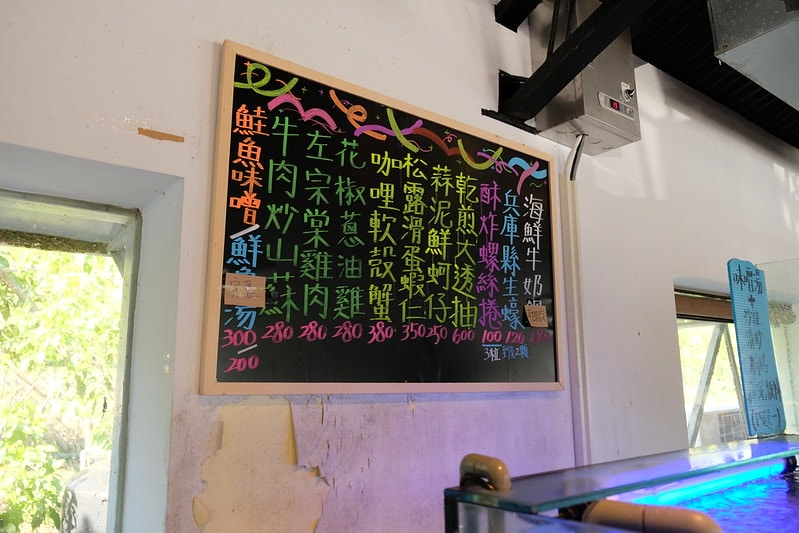 海鮮牛奶
兵庫縣生蠔 120
酥炸螺絲捲 100 3粒
乾煎大透抽 600
蒜泥鮮蚵仔 250
松露滑蛋蝦仁 350
咖哩軟殼蟹 380
花椒蔥油雞 280
左宗棠雞肉 280
牛肉炒山蘇 280
鮭魚味噌/鮮魚湯 300/200
味噌湯